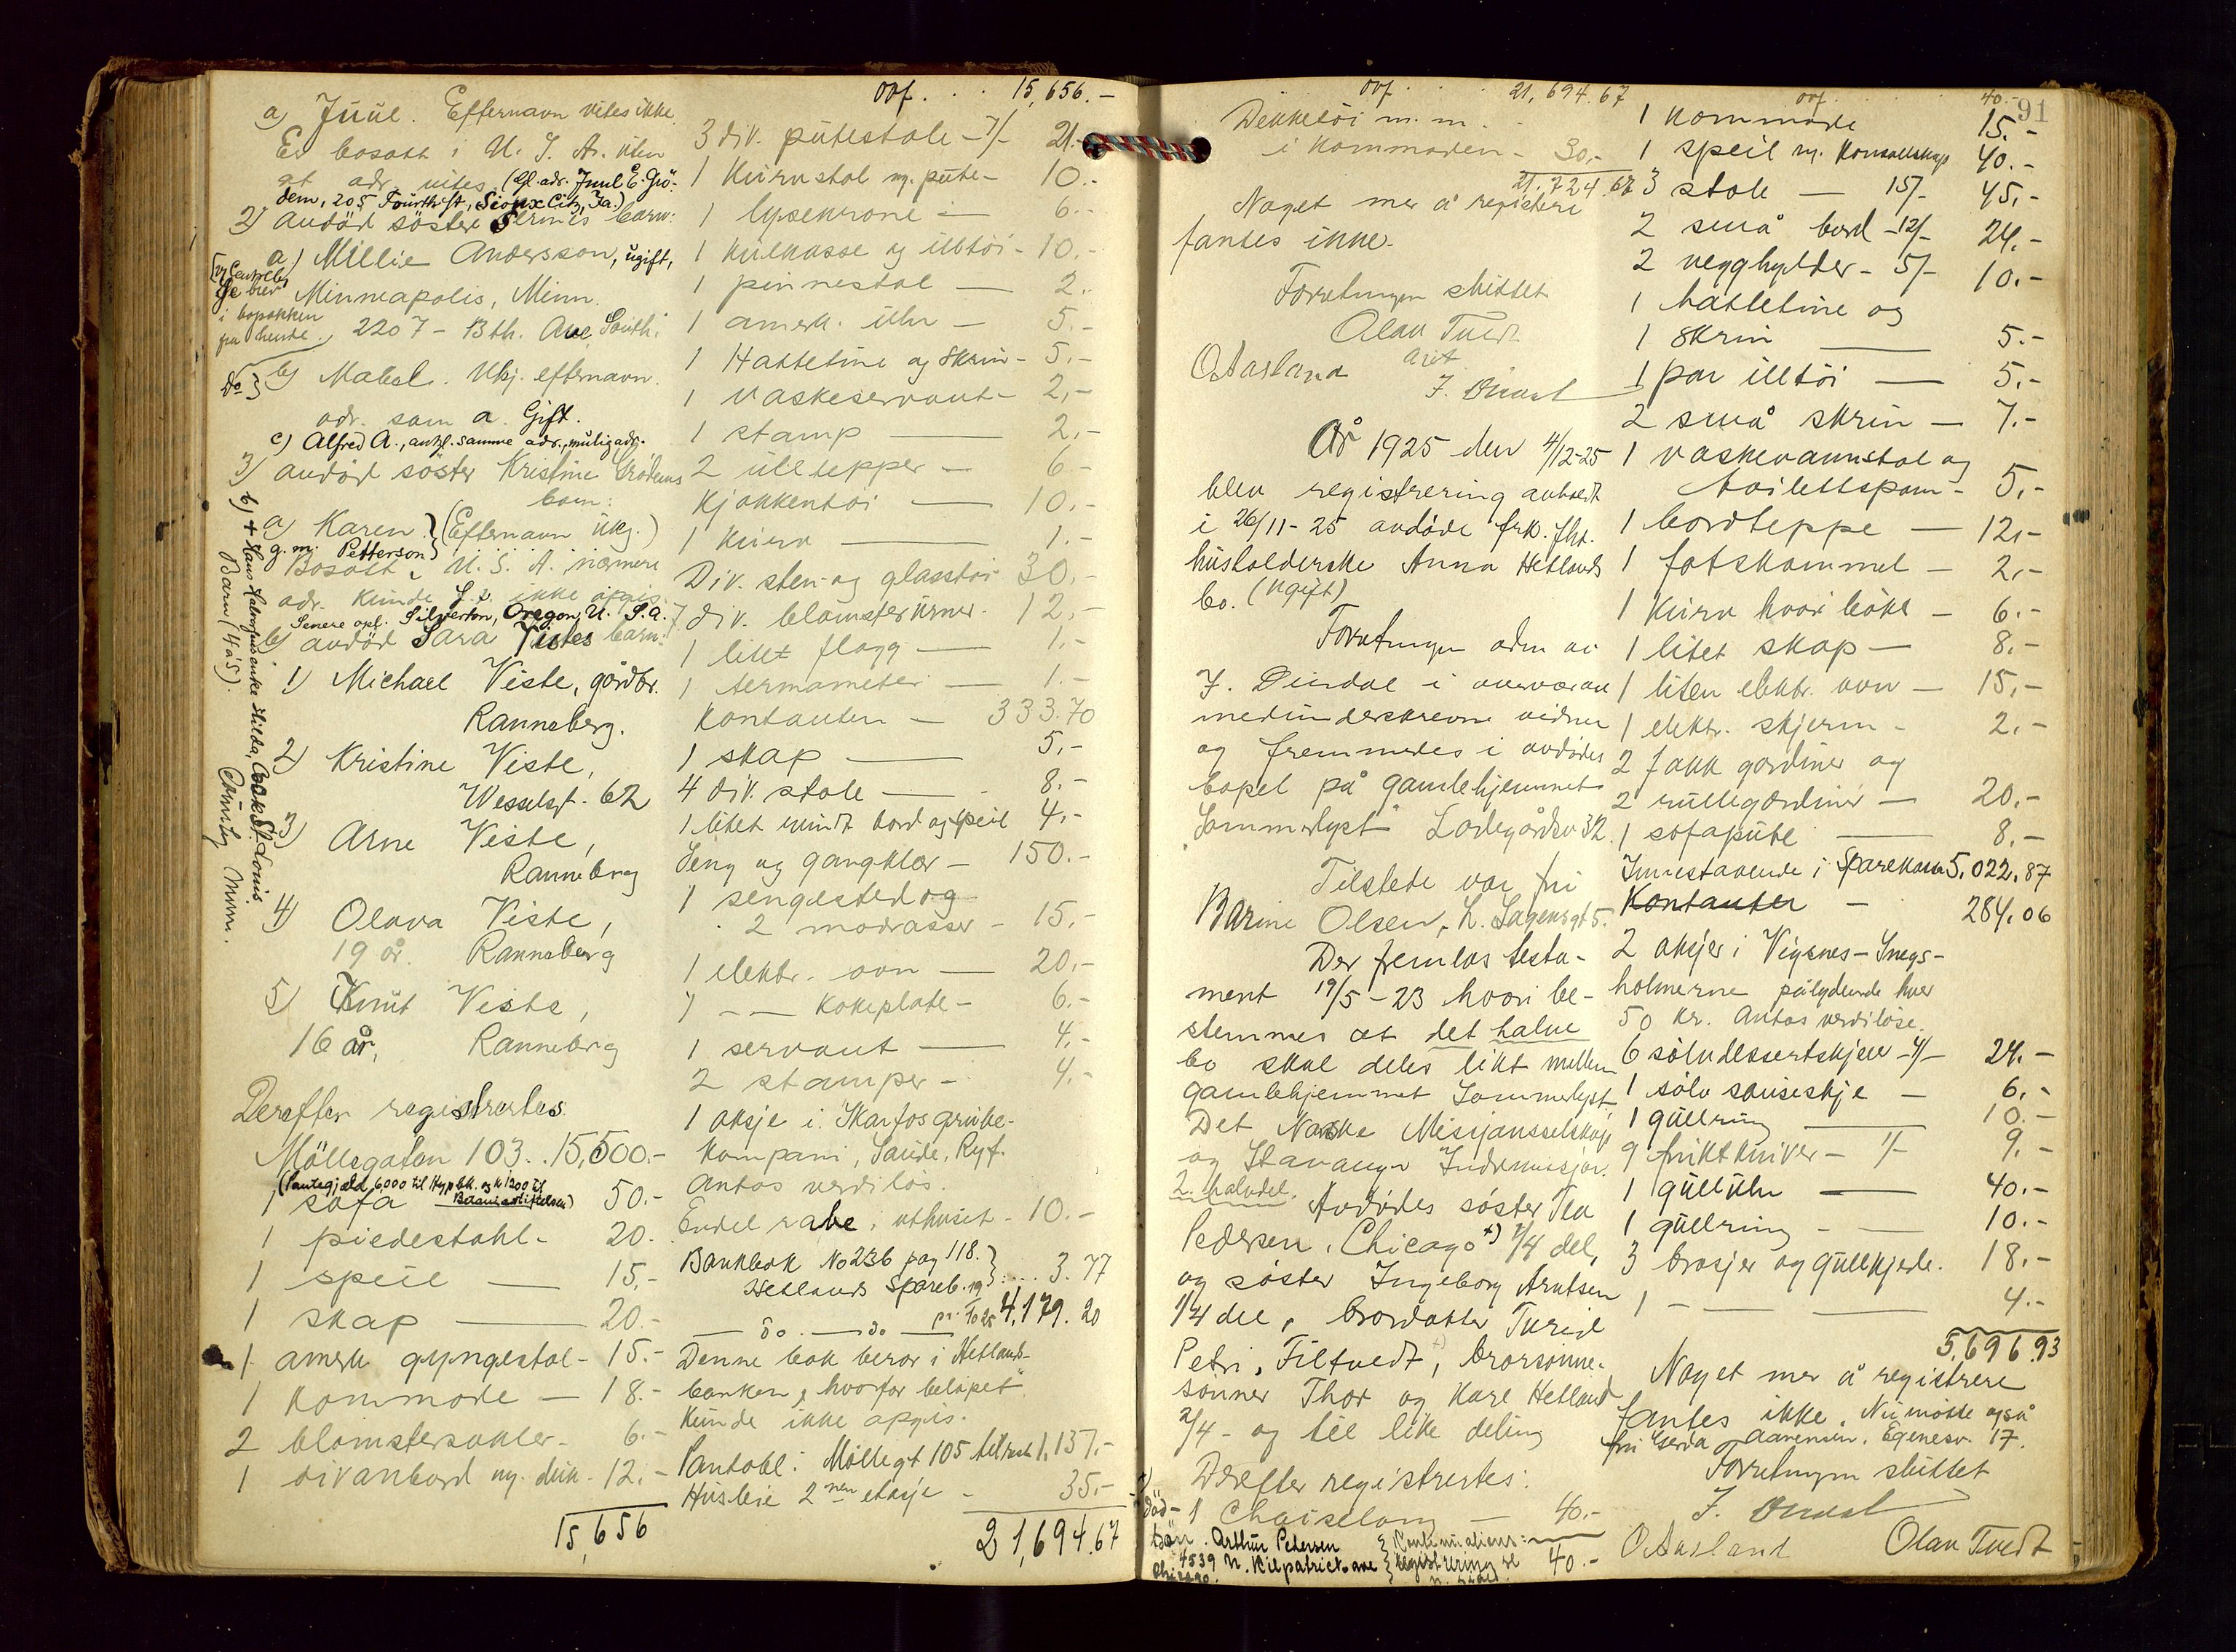 a) Juul. Efternavn vites ikke.
Er bosatt i U. S. A. uten
at adr. vites (Efl. adr. Juul E. Grö-
dem, 205 Fourth St, Sioux City, Ia.)
2) avdöd söster Serines barn:
a) Millie Andersson, ugift,
Minneapolis, Minn.
2207 - 13th. Ave South.
i bopakken
b) Mabel. Ukj. efternavn.
Do
adr. som a. Gift.
c) Alfred A., antgl. samme adr., mulig adr.
3) avdöd söster Kristine Grödems
barn:
a) Karen } (Efternavn ukj.)
g. m. Petterson
Bosatt i U. S. A. nærmere
adr. kunde f. t. ikke opgis.
Senere opl. Silverton, Oregon, U. S. A.
b) avdöd Sara Vistes barn:
1) Michael Viste, gårdbr.
Ranneberg.
2) Kristine Viste,
Wesselsgt. 62
3) Arne Viste,
Ranneberg
4) Olava Viste,
19 år. Ranneberg
5) Knut Viste,
16 år, Ranneberg
Barn (4 a 5).
County Minn.
Derefter registrertes
Möllegaten 103 . . 15,500.-
(Pantegjæld 6,000 til Hyp.bk. og k 1200 til
1 sofa 50.-
1 piedestahl - 20.
1 speil — 15,-
1 skap — 20.-
1 amerk gyngestol - 15.-
1 kommode — 18.-
2 blomstersökler - 6.-
1 divanbord m. duk - 12.-
15,656
ovf. . . 15,656.-
3 div. putestole - 7/- 21.-
1 kurvstol m. pute - 10.-
1 lysekrone — 6.-
1 kulkasse og ildtöi - 10.-
1 pinnestol — 2.-
1 amerk. uhr — 5.-
1 Hatteline og skrin - 5.-
1 vaskeservant - 2,-
1 stamp — 2,-
2 ulltepper — 6.-
Kjökkentöi — 10.-
1 kurv — 1.-
Div. sten- og glasstöi 30.-
7 div. blomsterurner - 12,-
1 litet flagg — 1.-
1 termometer — 1.-
Kontanter — 333.70
1 skap — 5,-
4 div. stole — 8.-
1 litet rundt bord og speil 4,-
Seng og gangklær — 150.-
1 sengested og
2 madrasser - 15.-
1 elektr. ovn — 20,-
1 — — kokeplate - 6.-
1 servant — 4,-
2 stamper - 4.-
1 aksje i Skarfos grube-
kompani, Saude, Ryf.
Antas verdilös.
Endel rabe i uthuset - 10.-
Bankbok No 236 pag 118.
Hetlands Spareb. 3.77
— do. — do — 4,179.20
Denne bok beror i Hetlands-
banken, hvorfor belöpet
kunde ikke opgis.
Pantobl: Möllegt 105 til rest 1,137.-
Husleie 2nen etasje - 35.-
21,694.67
ovf. . . 21,694.67
Dekketöi m. m. -
i kommoden - 30,-
21,724.67
Noget mer å registrere
fantes ikke.
Forretningen sluttet
Olav Tuedt
O. Aasland
År 1925 den 4/12-25
blev registrering avholdt
i 26/11-25 avdöde frk. fhv.
husholderske Anna Hetlands
bo. (Ugift)
Forretningen adm av
medunderskrevne vidner
og fremmedes i avdödes
bopel på gamlehjemmet
"Sommerlyst" Ladegårdsv 32.
Tilstede var fru
Barine Olsen, L. Sagensgt 5.
Der fremlas testa-
ment 19/5-23 hvori be-
stemmes at det halve
bo skal deles likt mellem
gamlehjemmet Sommerlyst,
Det Norske Misjonsselskap
og Stavanger Indremisjon.
2. halvdel. Avdödes söster Tea
Pedersen, Chicago +) 1/4 del,
og söster Ingeborg Arntsen
1/4 del, brordatter Turid
Petri, Filtvedt, brorsönne-
sönner Thor og Kåre Hetland
2/4 - og til like deling
Derefter registrertes:
1 Chaiselong — 40.-
40.-
Arthur Pedersen
4539 N. Kilpatrick ave
Chicago.
91
ovf. . . 40.-
1 kommode 15.-
1 speil m. konsollskap 40.-
3 stole — 15/- 45,-
2 små bord - 12/- 24,-
2 vegghylder - 5/- 10.-
1 hatteline og
1 skrin — 5.-
1 par illtöi — 5,-
2 små skrin — 7.-
1 vaskevannstol og
toilettspann - 5,-
1 bordteppe — 12,-
1 fotskammel — 2,-
1 kurv hvori böker — 6.-
1 litet skap — 8,-
1 liten elektr. ovn — 15,-
1 elektr. skjerm - 2,-
2 fakk gardiner og
2 rullegardiner — 20.-
1 sofapute — 8,-
Innestaaende i Sparekasse 5,022,87
Kontanter — 284,06
2 aksjer i Vigsnes-Snegs-
holmerne pålydende hver
50 kr. Antas verdilöse.
6 sölvdessertskjeer - 4/- 24.-
1 sölv sauseskje — 6.-
1 gullring — 10.-
9 fruktkniver - 1/- 9.-
1 gulluhr — 40.-
1 gullring — 10.-
3 brosjer og gullkjede. 18.-
1 — — 4.-
5,696.93
Noget mer å registrere
fantes ikke. Nu mötte også
fru Gerda Aanensen, Egenesv. 17.
Forretningen sluttet
O. Aasland Olav Tuedt